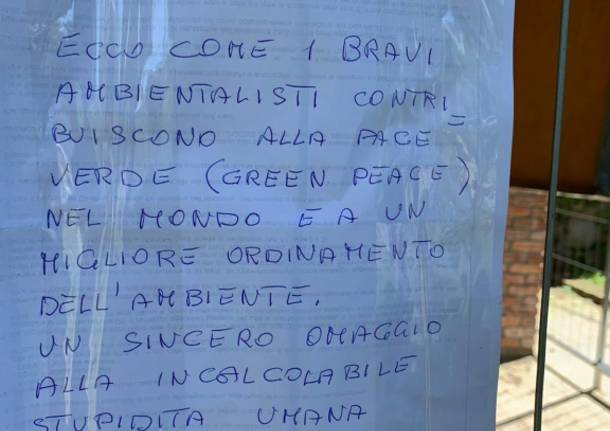 ECCO COME I BRAVI
AMBIENTALISTI CONTRI=
BUISCONO ALLA PACE
VERDE (GREEN PEACE)
NEL MONDO E A UN
MIGLIORE ORDINAMENTO
DELL'AMBIENTE.
UN SINCERO OMAGGIO
ALLA INCALCOLABILE
STUPIDITA UMANA